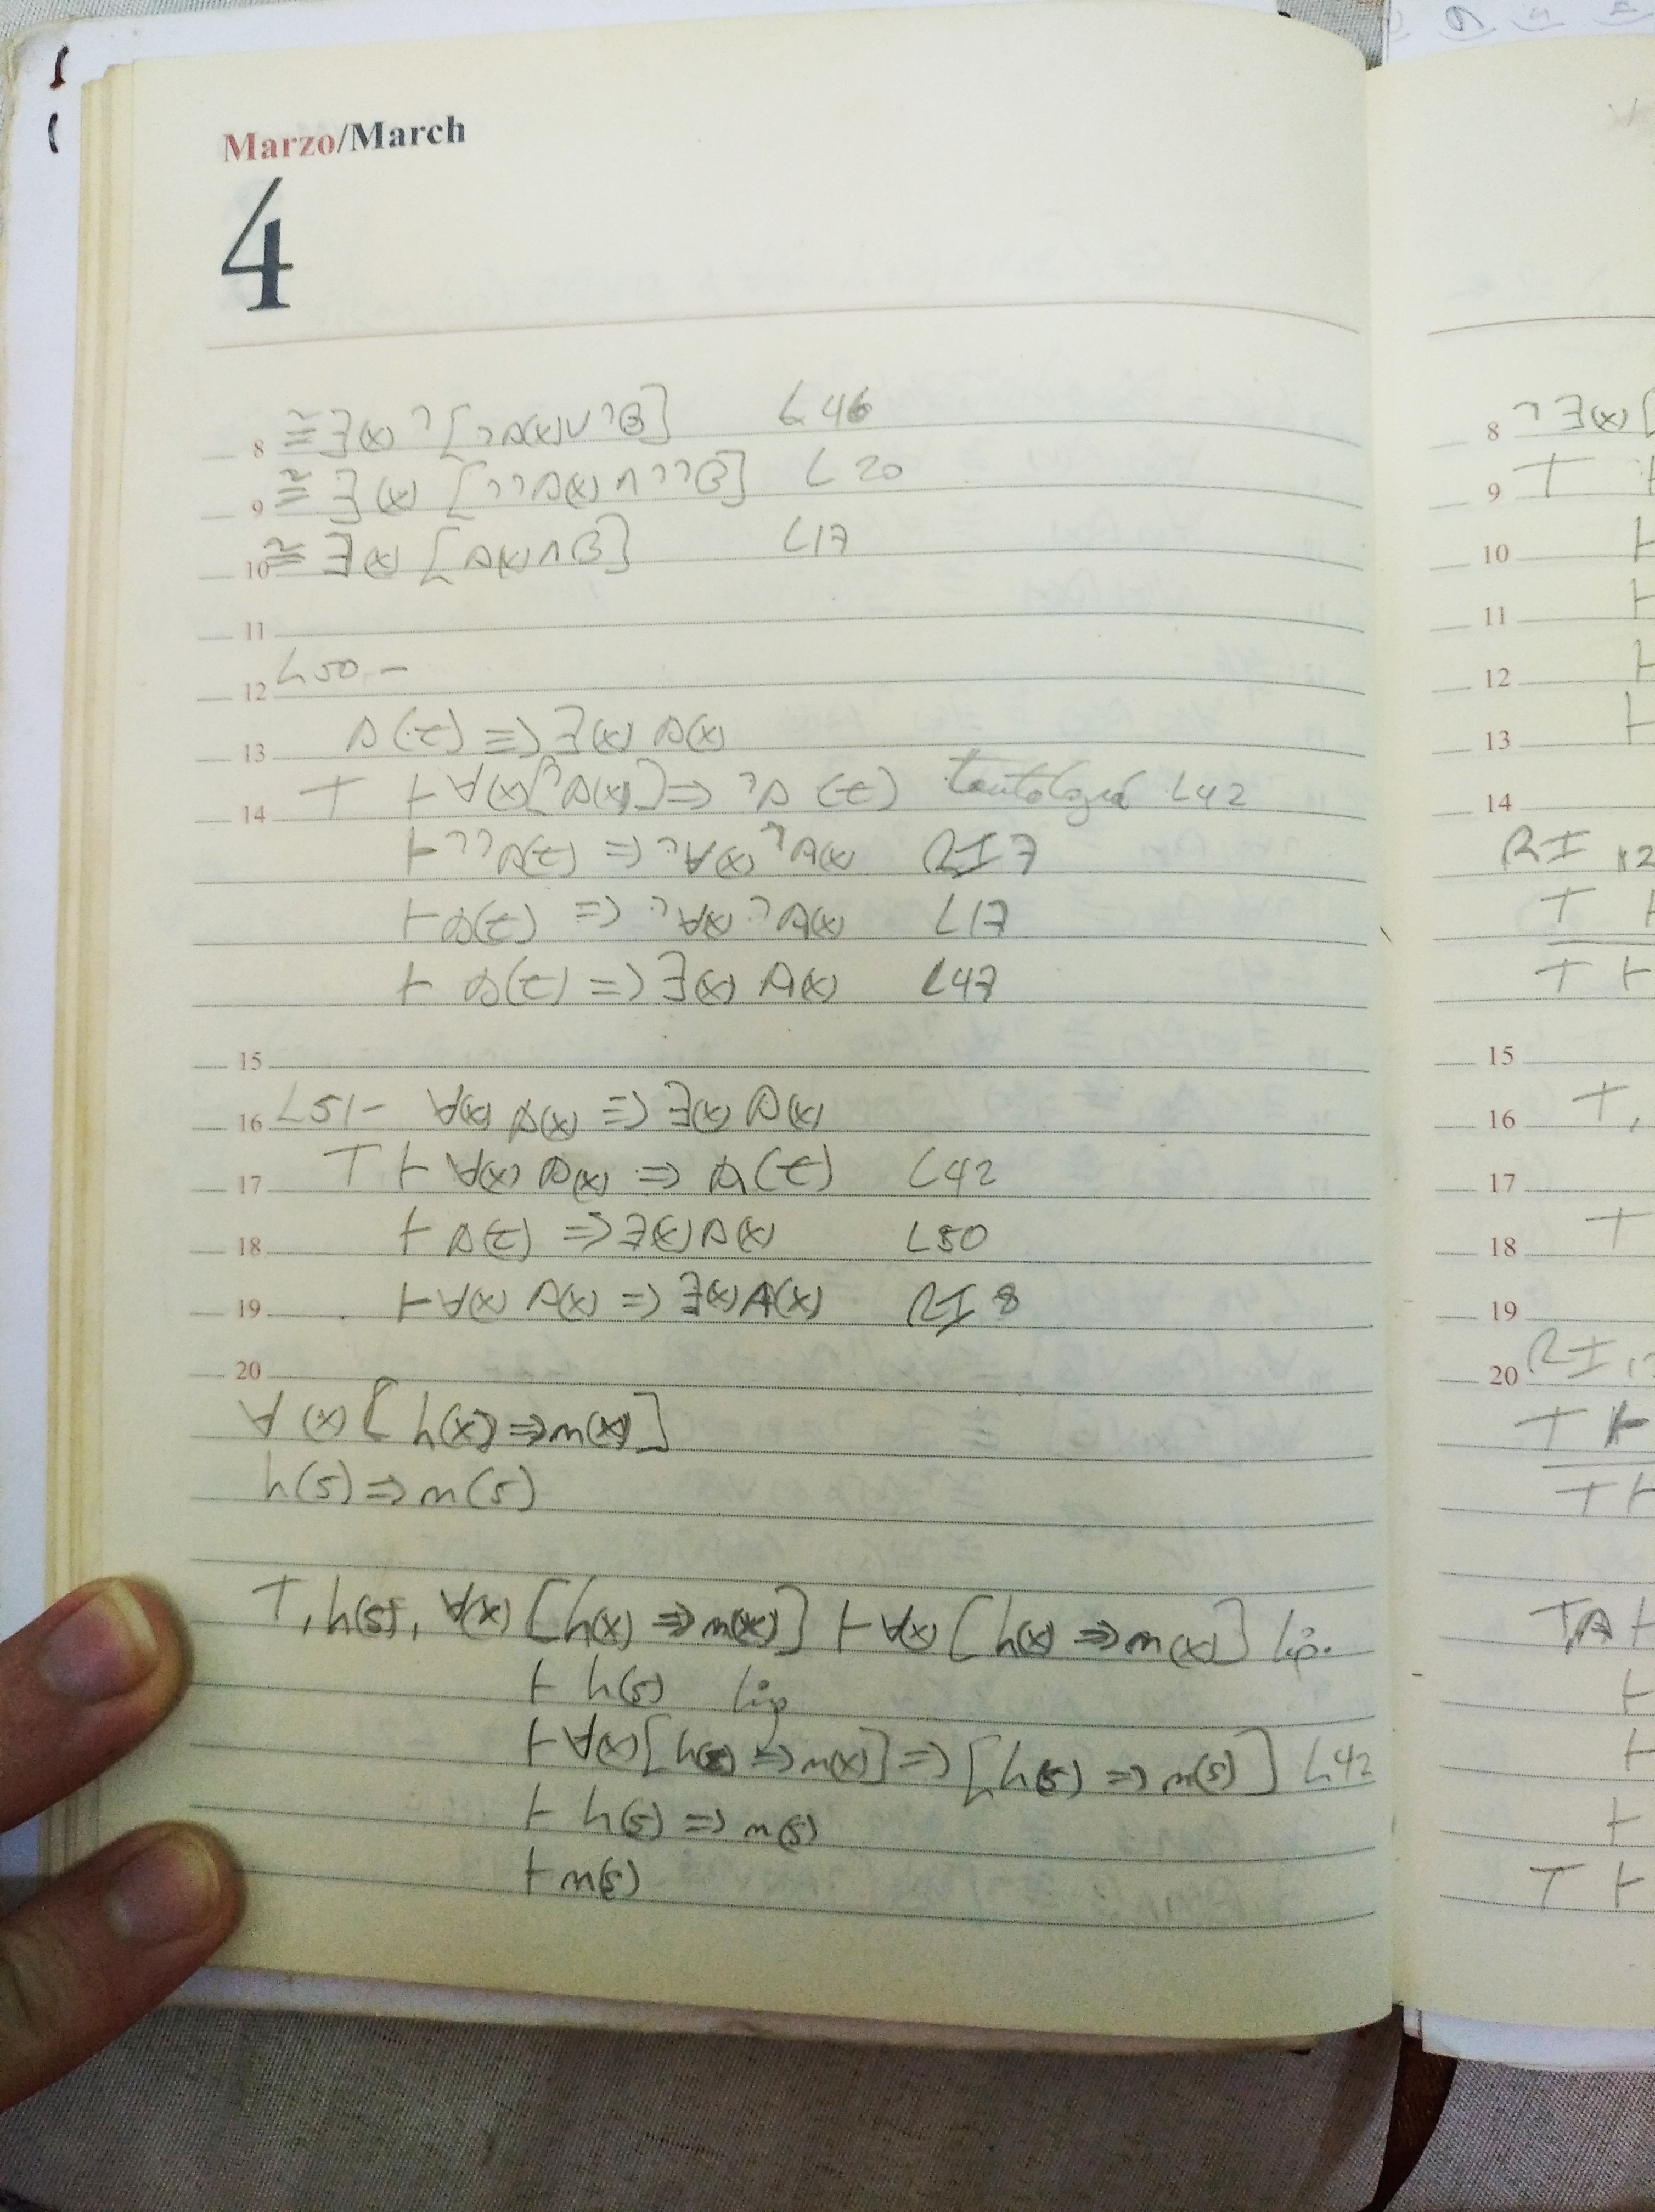 Marzo/March
4
8 ≅ ∃(x) ¬[¬A(x)∨¬B] L46
9 ≅ ∃(x) [¬¬A(x)∧¬¬B] L20
10 ≅ ∃(x) [A(x)∧B] L17
11
12 L50.-
13 A(t) => ∃(x) A(x)
14 T ⊢ ∀(x)[¬A(x)] => ¬A(t) tautología L42
⊢ ¬¬A(t) => ¬∀(x)¬A(x) RI7
⊢ A(t) => ¬∀(x)¬A(x) L17
⊢ A(t) => ∃(x) A(x) L47
15
16 L51- ∀(x) A(x) => ∃(x) A(x)
17 T ⊢ ∀(x) A(x) => A(t) L42
18 ⊢ A(t) => ∃(x)A(x) L50
19 ⊢ ∀(x) A(x) => ∃(x)A(x) RI8
20
∀(x) [h(x) => m(x)]
h(s) => m(s)
T, h(s), ∀(x) [h(x) => m(x)] ⊢ ∀(x) [h(x) => m(x)] hip.
⊢ h(s) hip
⊢ ∀(x)[h(x) => m(x)] => [h(s) => m(s)] L42
⊢ h(s) => m(s)
⊢ m(s)
8 ¬∃(x)[
9 T ⊢
10 ⊢
11 ⊢
12 ⊢
13 ⊢
14
RI
T
T ⊢
15
16 T,
17
18 T
19
20 RI
T ⊢
T ⊢
TA ⊢
⊢
⊢
⊢
T ⊢